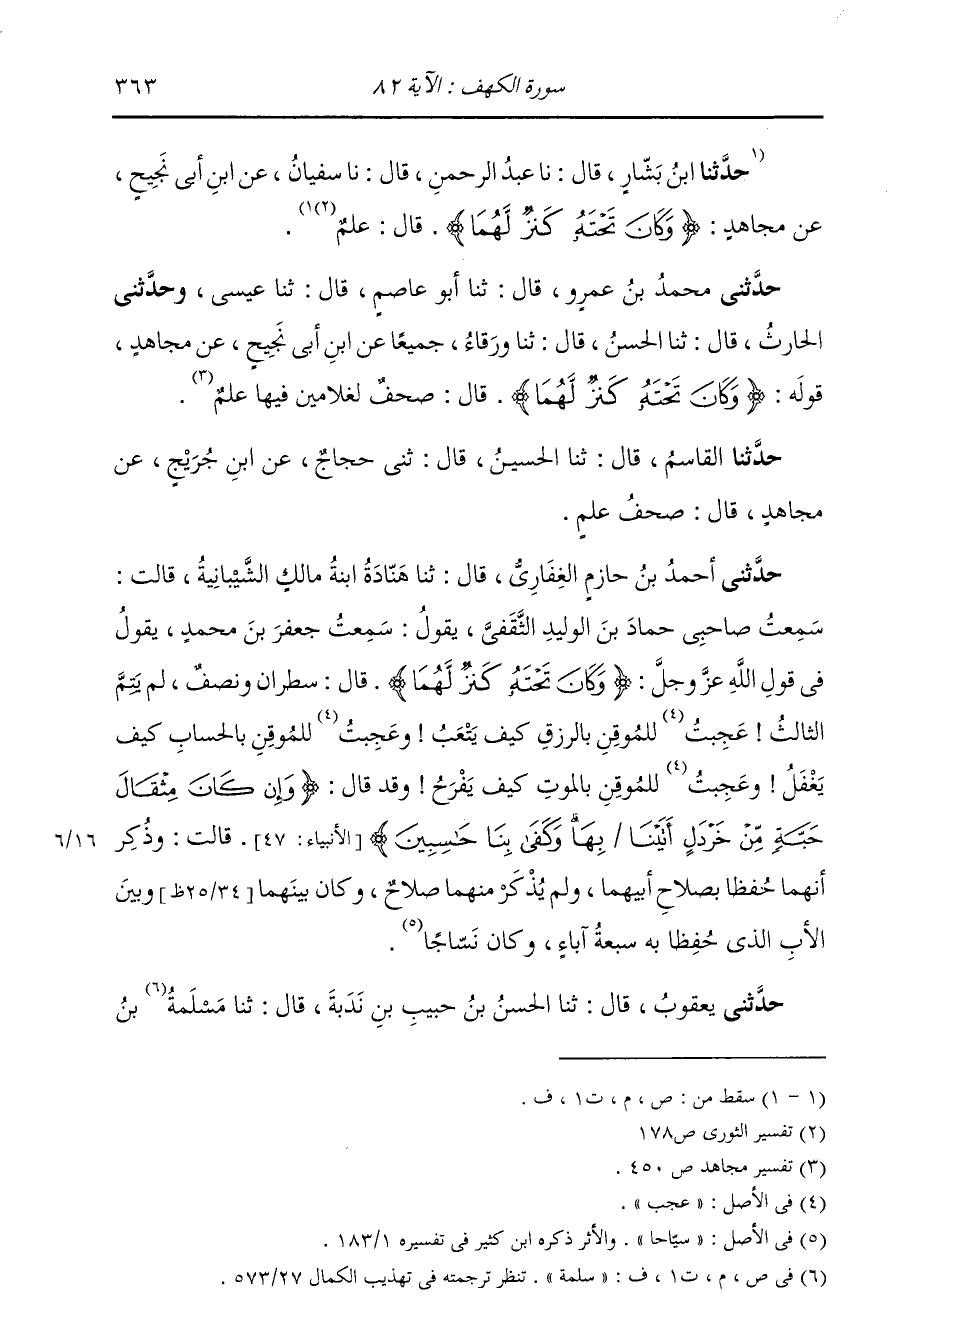 سورة الكهف : الآية ٨٢ ٣٦٣
(١حدَّثنا ابنُ بَشّارٍ ، قال : نا عبدُ الرحمنِ ، قال : نا سفيانُ ، عن ابنِ أبى نَجِيحٍ ،
عن مجاهدٍ : ﴿ وَكَانَ تَحْتَهُ كَنزٌ لَّهُمَا ﴾ . قال : علمٌ(٢)١) .
حدَّثنى محمدُ بنُ عمرٍو ، قال : ثنا أبو عاصمٍ ، قال : ثنا عيسى ، وحدَّثنى
الحارثُ ، قال : ثنا الحسنُ ، قال : ثنا ورقاءُ ، جميعًا عن ابنِ أبى نَجِيحٍ ، عن مجاهدٍ ،
قولَه : ﴿ وَكَانَ تَحْتَهُ كَنزٌ لَّهُمَا ﴾ . قال : صحفٌ لغلامين فيها علمٌ(٣) .
حدَّثنا القاسمُ ، قال : ثنا الحسينُ ، قال : ثنى حجاجٌ ، عن ابنِ جُرَيْجٍ ، عن
مجاهدٍ ، قال : صحفُ علمٍ .
حدَّثنى أحمدُ بنُ حازمٍ الغِفَارِىُّ ، قال : ثنا هَنّادَةُ ابنةُ مالكٍ الشَّيْبانِيةُ ، قالت :
سَمِعتُ صاحبِى حمادَ بنَ الوليدِ الثَّقَفىَّ ، يقولُ : سَمِعتُ جعفرَ بنَ محمدٍ ، يقولُ
فى قولِ اللَّهِ عزَّ وجلَّ : ﴿ وَكَانَ تَحْتَهُ كَنزٌ لَّهُمَا ﴾ . قال : سطران ونصفٌ ، لم يَتِمَّ
الثالثُ ! عَجِبتُ(٤) للمُوقِنِ بالرزقِ كيف يَتْعَبُ ! وعَجِبتُ(٤) للمُوقِنِ بالحسابِ كيف
يَغْفَلُ ! وعَجِبتُ(٤) للمُوقِنِ بالموتِ كيف يَفْرَحُ ! وقد قال : ﴿ وَإِن كَانَ مِثْقَالَ
حَبَّةٍ مِّنْ خَرْدَلٍ أَتَيْنَا / بِهَا وَكَفَى بِنَا حَاسِبِينَ ﴾ [الأنبياء: ٤٧] . قالت : وذُكِر ٦/١٦
أنهما حُفظا بصلاحِ أبيهما ، ولم يُذْكَرْ منهما صلاحٌ ، وكان بينَهما [٢٥/٣٤ظ] وبينَ
الأبِ الذى حُفِظا به سبعةُ آباءٍ ، وكان نَسّاجًا(٥) .
حدَّثنى يعقوبُ ، قال : ثنا الحسنُ بنُ حبيبِ بنِ نَدَبةَ ، قال : ثنا مَسْلَمةُ(٦) بنُ
(١ - ١) سقط من : ص ، م ، ت١ ، ف .
(٢) تفسير الثورى ص١٧٨
(٣) تفسير مجاهد ص ٤٥٠ .
(٤) فى الأصل : « عجب » .
(٥) فى الأصل : « سيّاحا » . والأثر ذكره ابن كثير فى تفسيره ١٨٣/١ .
(٦) فى ص ، م ، ت١ ، ف : « سلمة » . تنظر ترجمته فى تهذيب الكمال ٥٧٣/٢٧ .